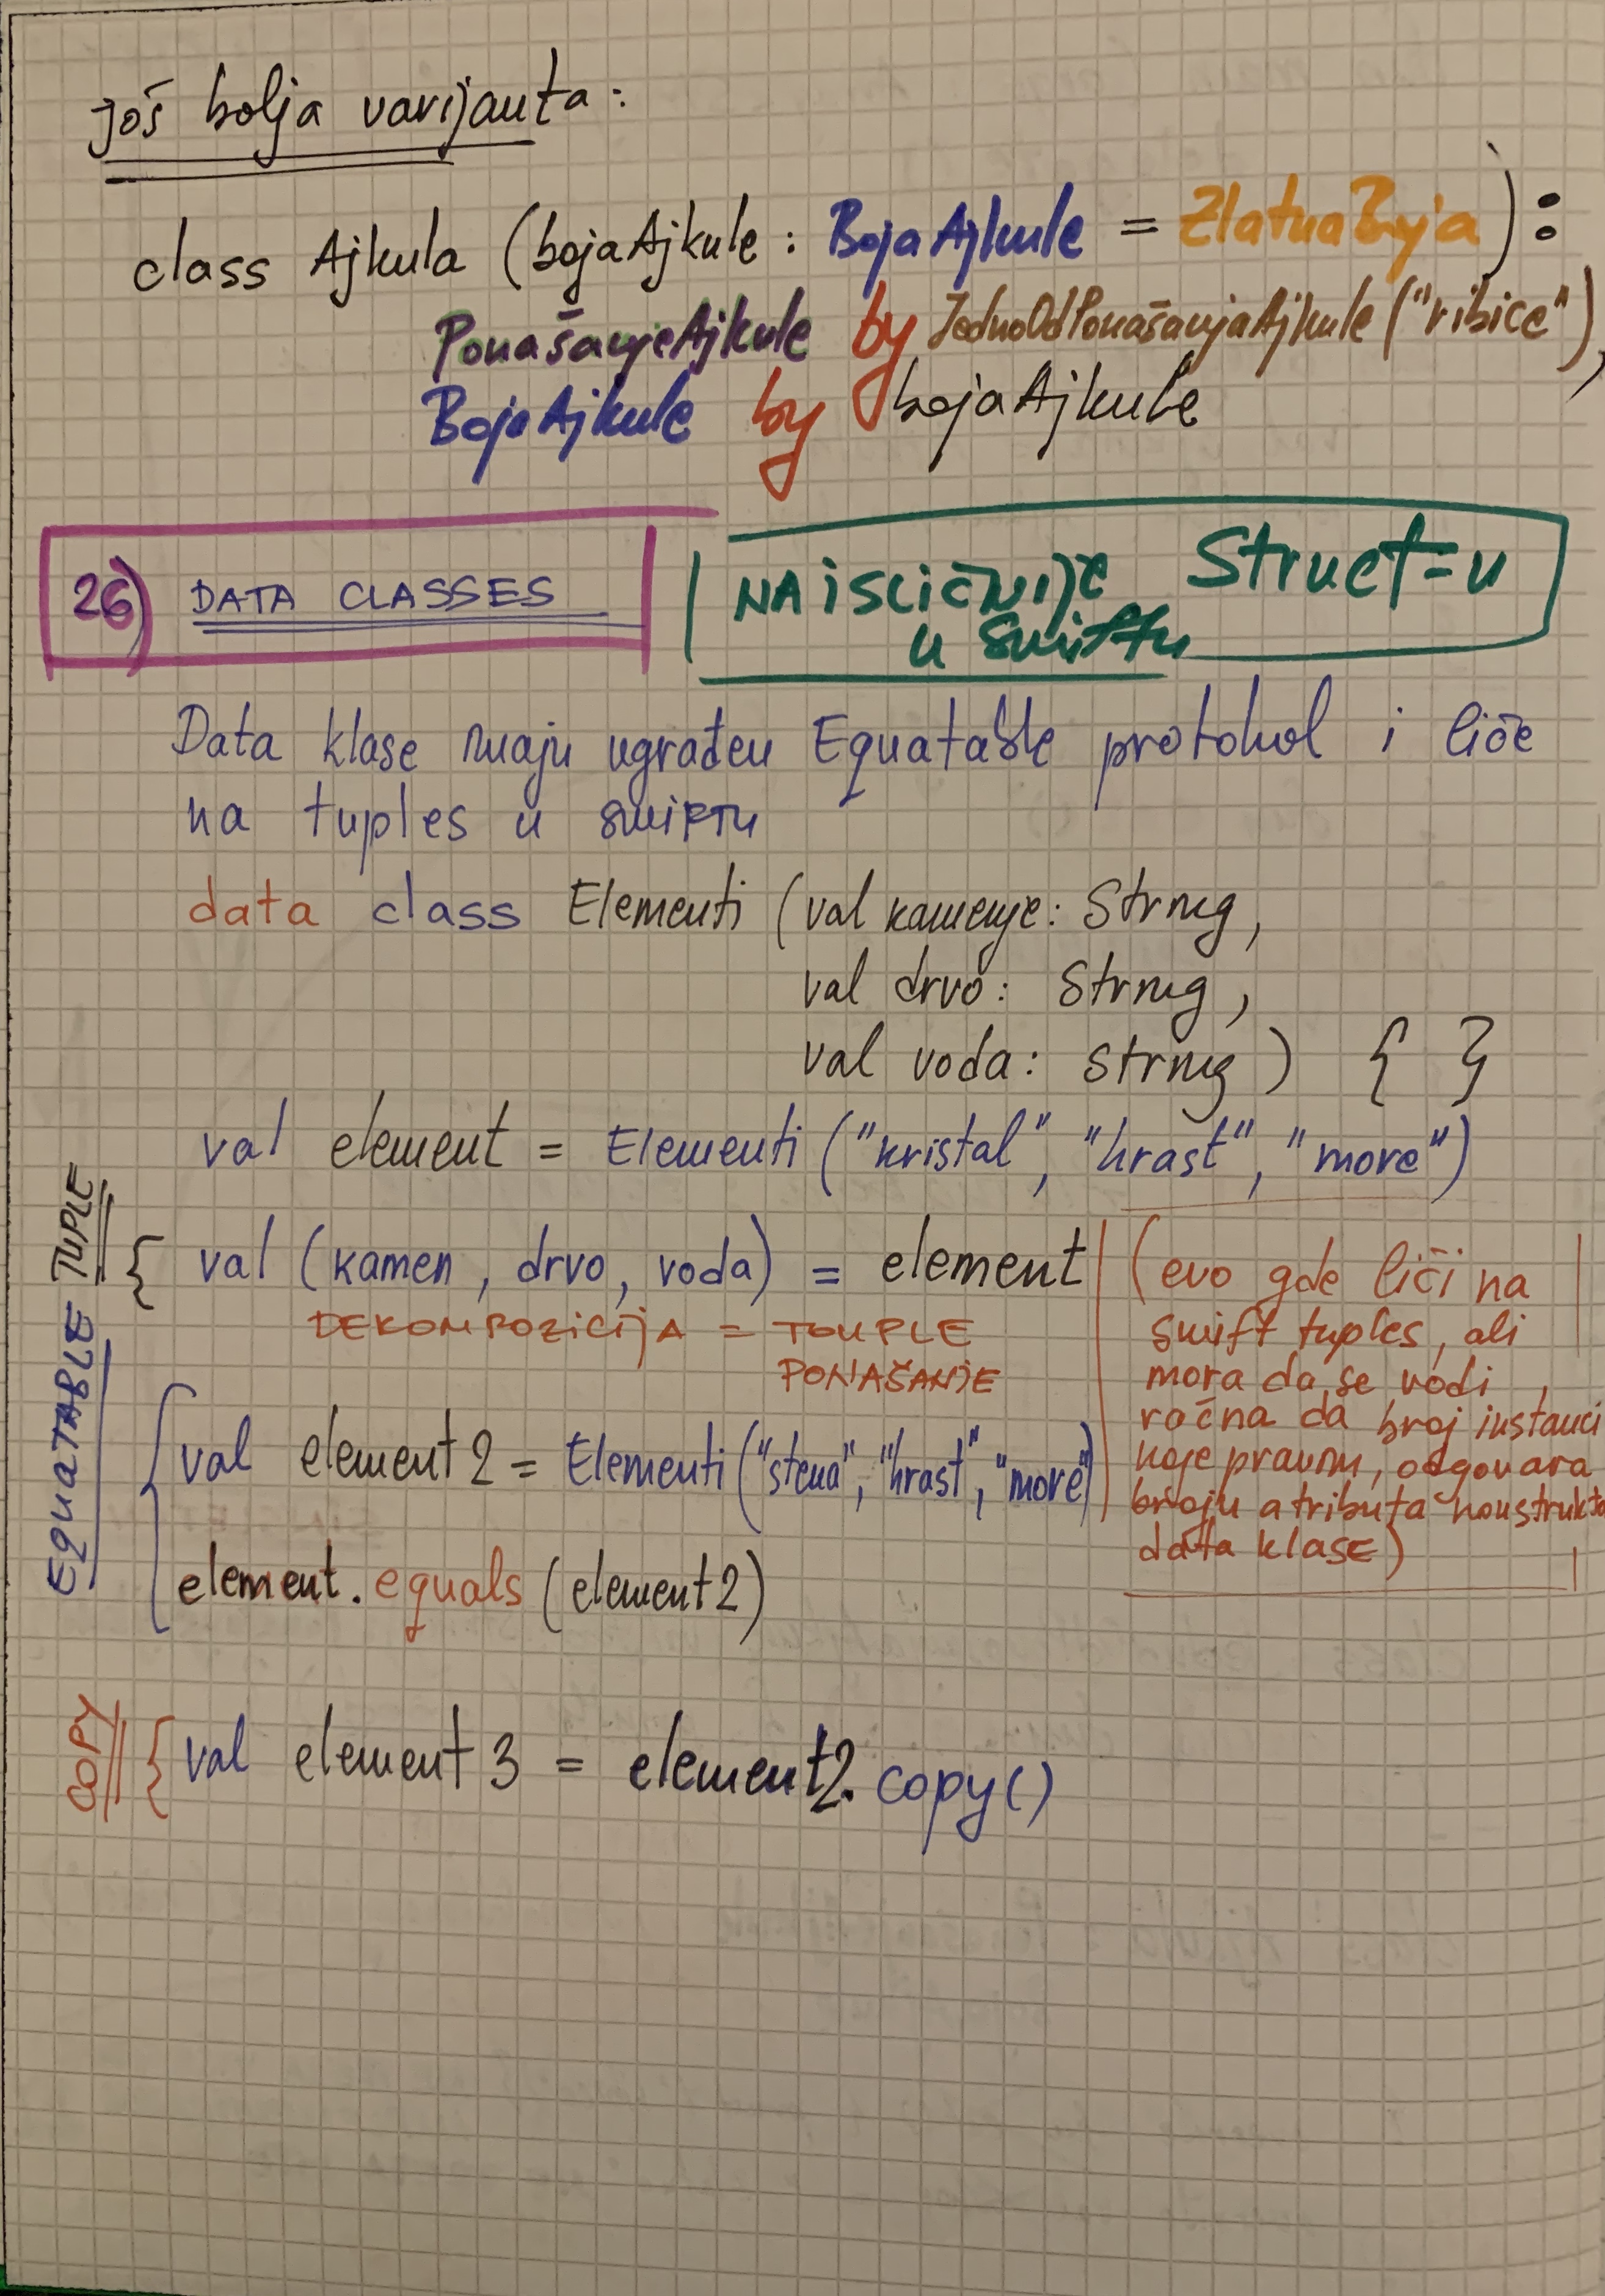 još bolja varijanta:
class Ajkula (bojaAjkule : BojaAjkule = ZlatnaBoja) :
PonašanjeAjkule by JednoOdPonašanjaAjkule ("ribice"),
BojaAjkule by bojaAjkule
26) DATA CLASSES
NAJSLIČNIJE Struct-u
u swiftu
Data klase imaju ugrađen Equatable protokol i liče
na tuples u swiftu
data class Elementi (val kamenje: String,
val drvo: String,
val voda: String) { }
val element = Elementi ("kristal", "hrast", "more")
EQUATABLE TUPLE
{ val (kamen, drvo, voda) = element
DEKOMPOZICIJA = TOUPLE
PONAŠANJE
(evo gde liči na
swift tuples, ali
mora da se vodi
računa da broj instanci
koje pravim, odgovara
broju atributa konstrukto
data klase)
{ val element2 = Elementi ("stena", "hrast", "more")
element.equals (element2)
COPY
{ val element3 = element2.copy()